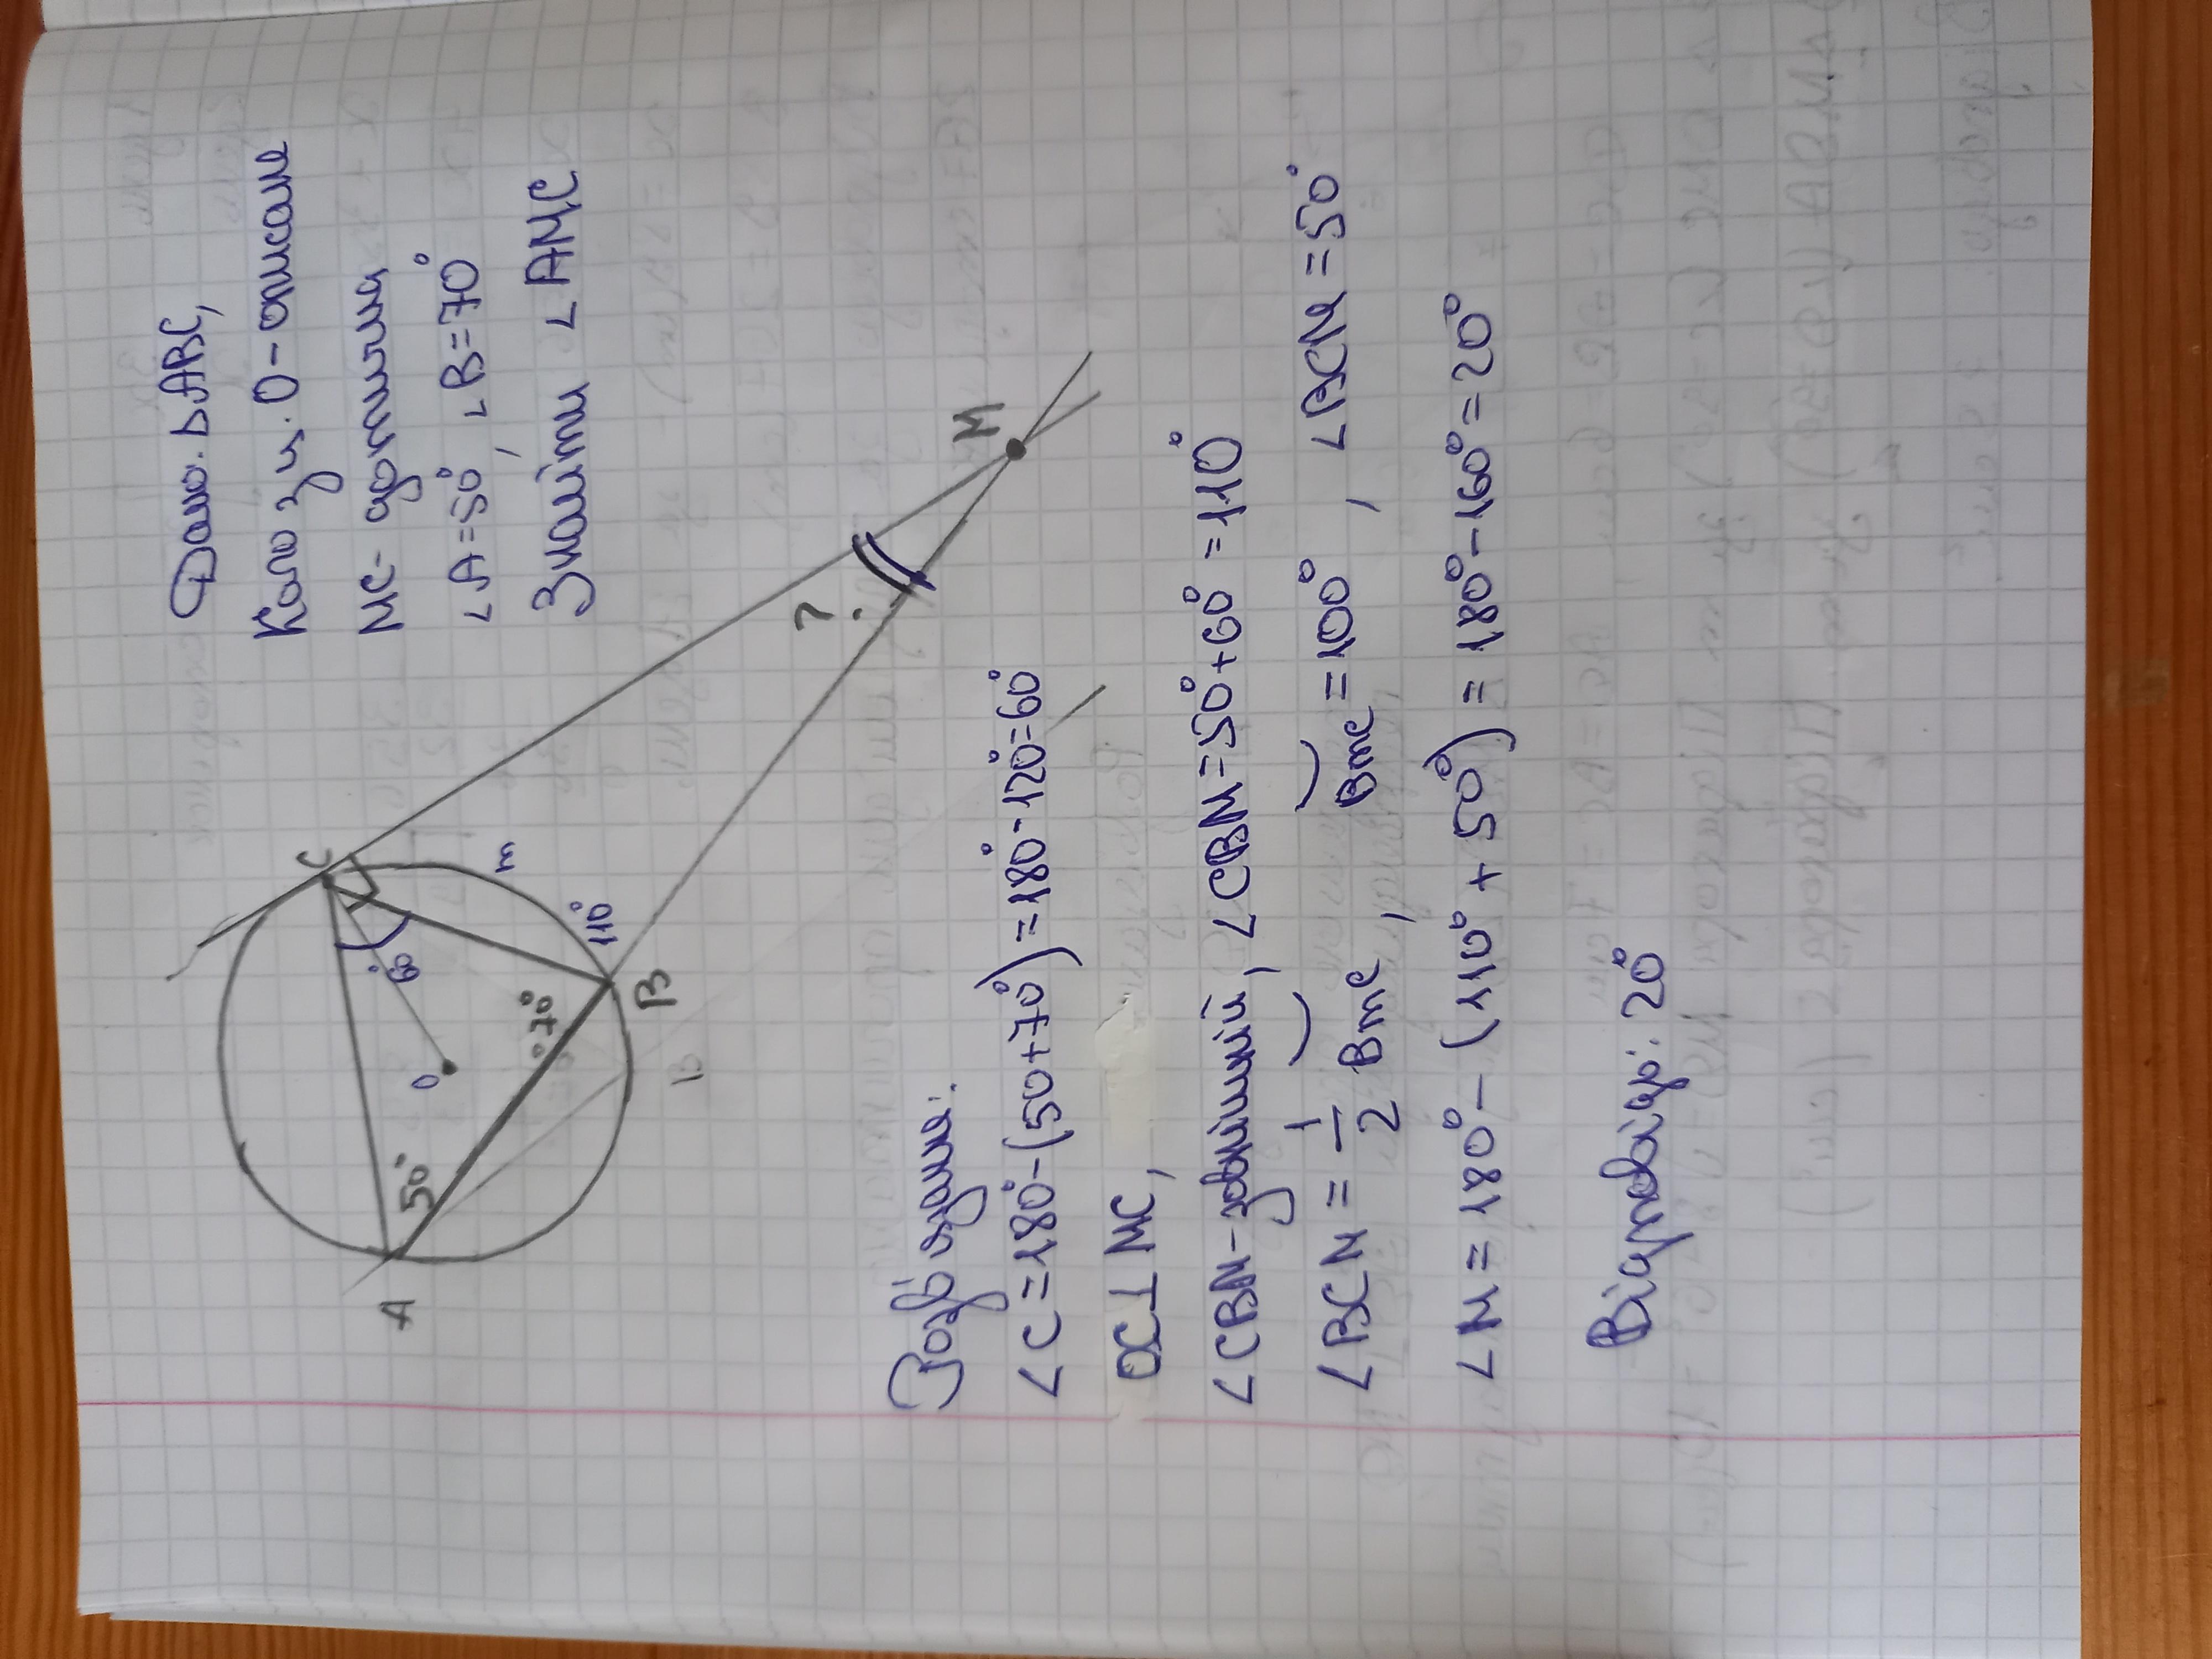 Дано: ΔABC,
Коло з ц. O - описане
MC - дотична
∠A = 50°, ∠B = 70°
Знайти ∠AMC
C
m
60°
110°
O
70°
50°
A
B
?
M
Розв'язання:
∠C = 180° - (50 + 70°) = 180° - 120° = 60°
OC ⊥ MC,
∠CBM - зовнішній, ∠CBM = 50° + 60° = 110°
∠BCM = 1/2 ◡Bmc, ◡Bmc = 100°, ∠BCM = 50°
∠M = 180° - (110° + 50°) = 180° - 160° = 20°
Відповідь: 20°